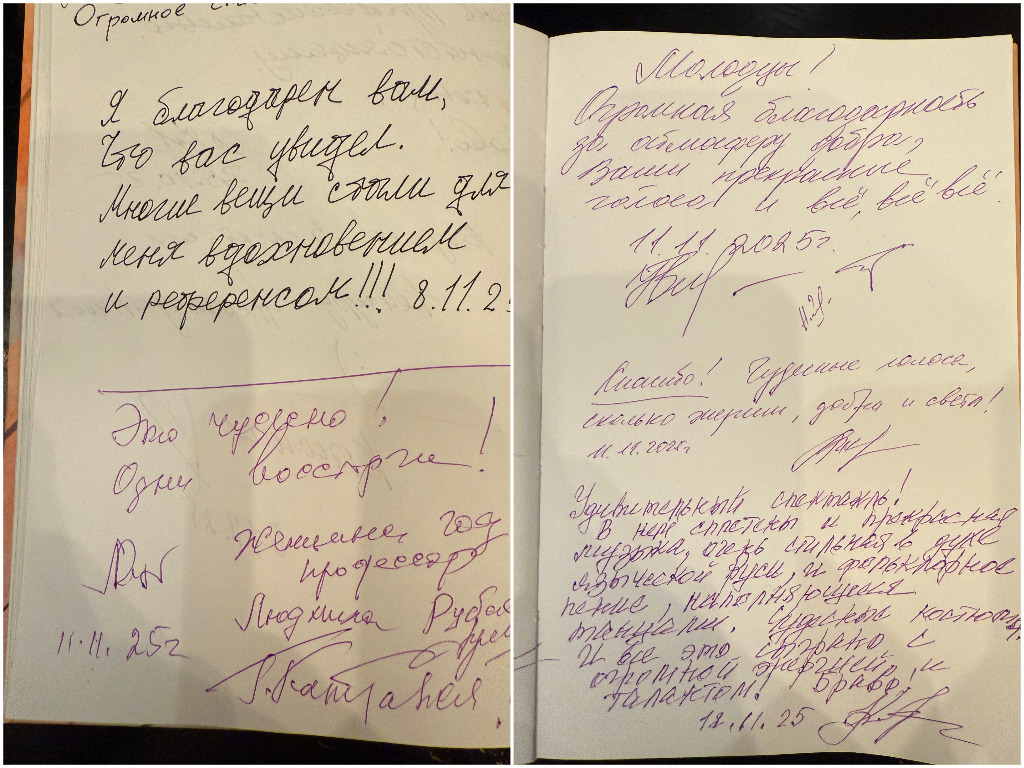 Огромное
Я благодарен вам,
Что вас увидел.
Многие вещи стали для
меня вдохновением
и референсом!!! 8.11.25
Это чудесно!
Одни восторги!
Женщина год
профессор
Людмила
11.11.25г
Молодцы!
Огромная благодарность
за обмосферу добра,
Ваши прекрасные
голоса и всё, всё всё!
11.11.2025г.
Спасибо! Чудесные голоса,
сколько энергии, добра и света!
11.11.2025г
Удивительный спектакль!
В нем сплетены и прекрасная
музыка, очень стильная в духе
языческой Руси, и фольклорное
пение, наполняющееся
танцами. Чудесные костюмы.
И все это сыграно с
огромной энергией и
талантом! Браво!
12.11.25